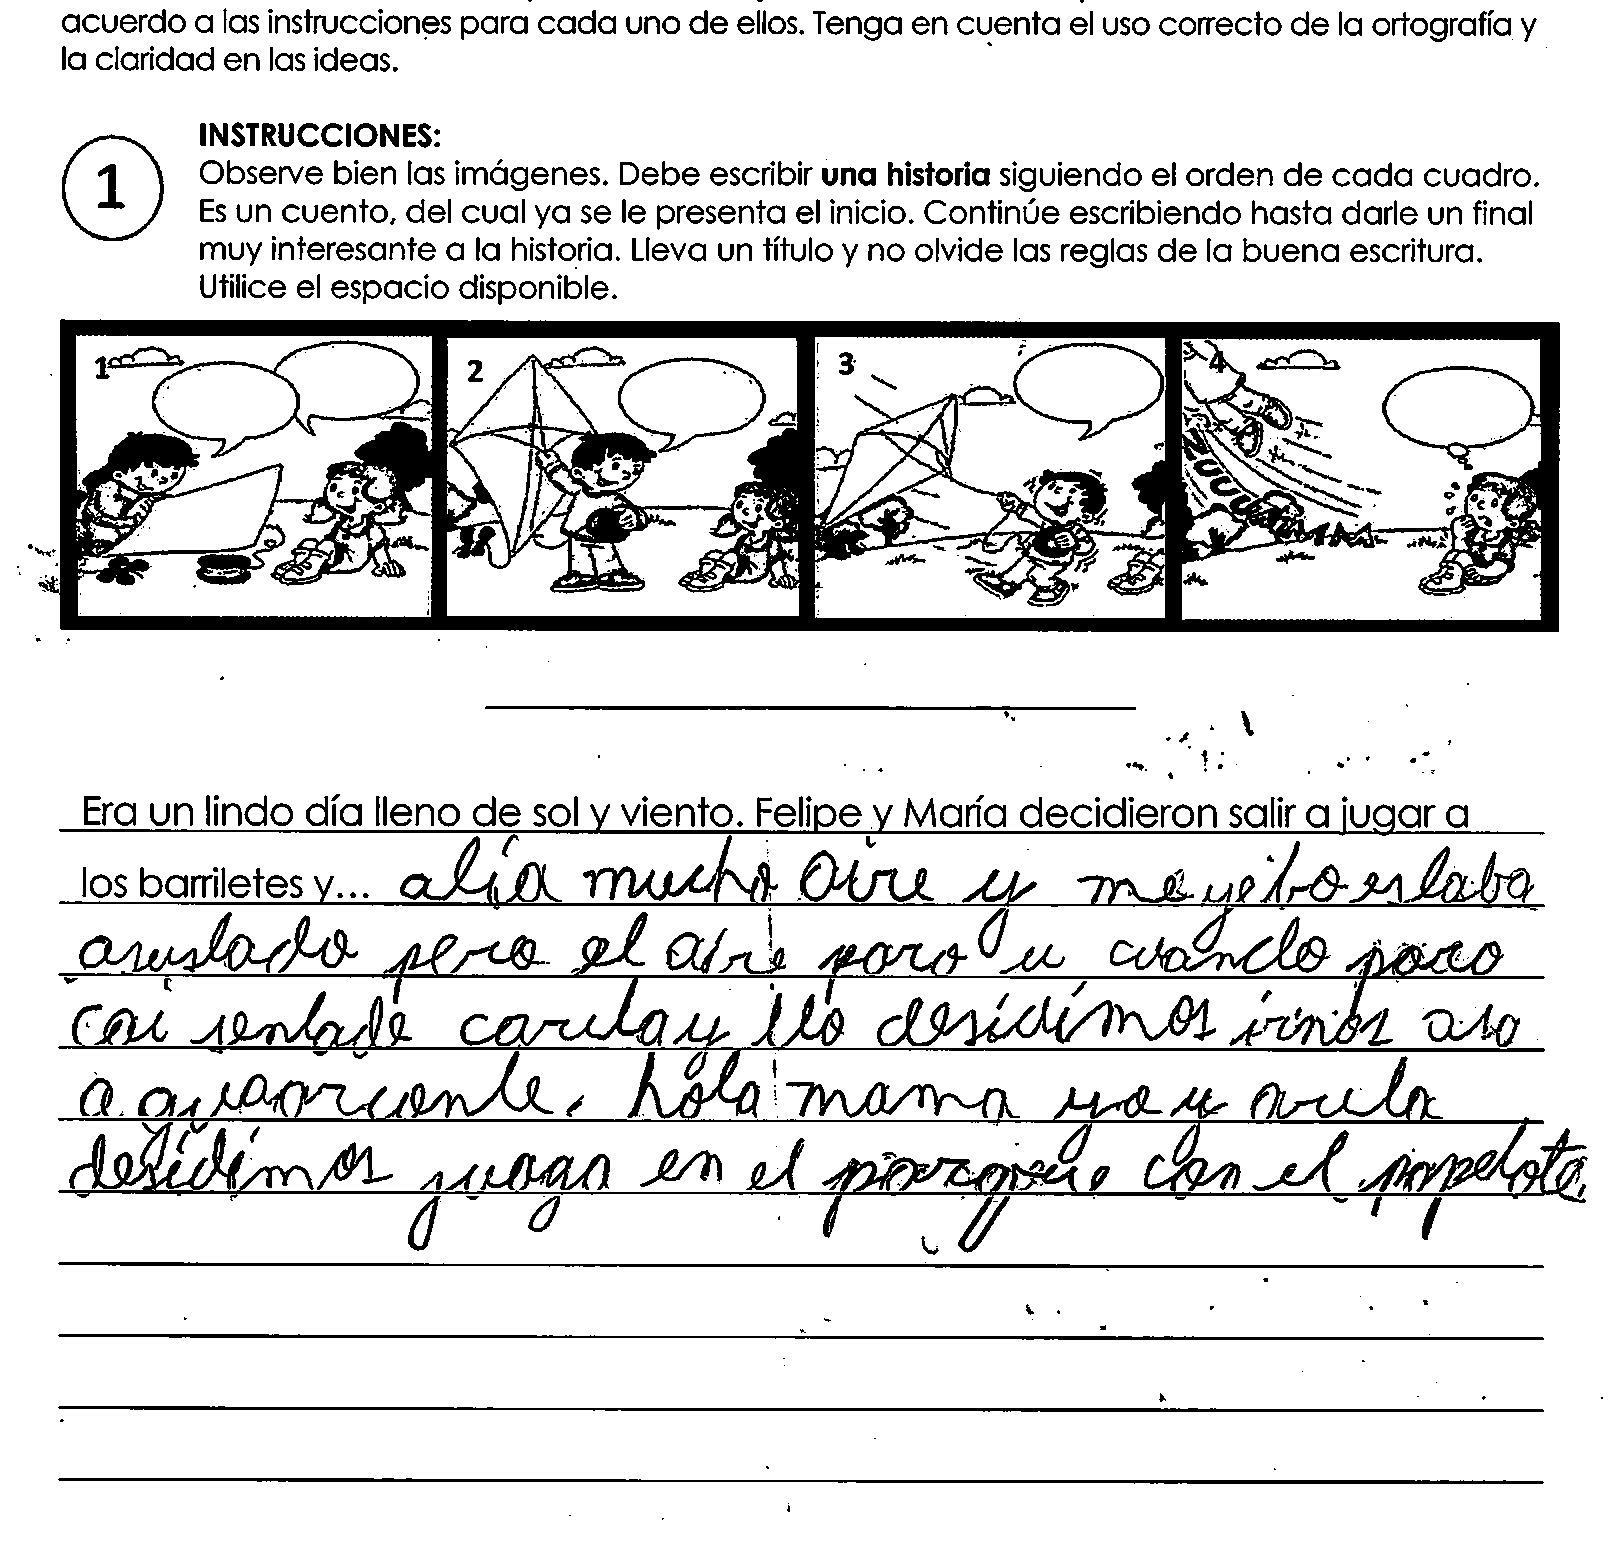 acuerdo a las instrucciones para cada uno de ellos. Tenga en cuenta el uso correcto de la ortografía y
la claridad en las ideas.
1
INSTRUCCIONES:
Observe bien las imágenes. Debe escribir una historia siguiendo el orden de cada cuadro.
Es un cuento, del cual ya se le presenta el inicio. Continúe escribiendo hasta darle un final
muy interesante a la historia. Lleva un título y no olvide las reglas de la buena escritura.
Utilice el espacio disponible.
1 2 3 4
Era un lindo día lleno de sol y viento. Felipe y María decidieron salir a jugar a
los barriletes y... alía mucho aire y estaba
asustado pero el aire paro y cuando paro
cai carula y llo desidimos irnos
hola mama yo y
desidimos en el con el papelote.